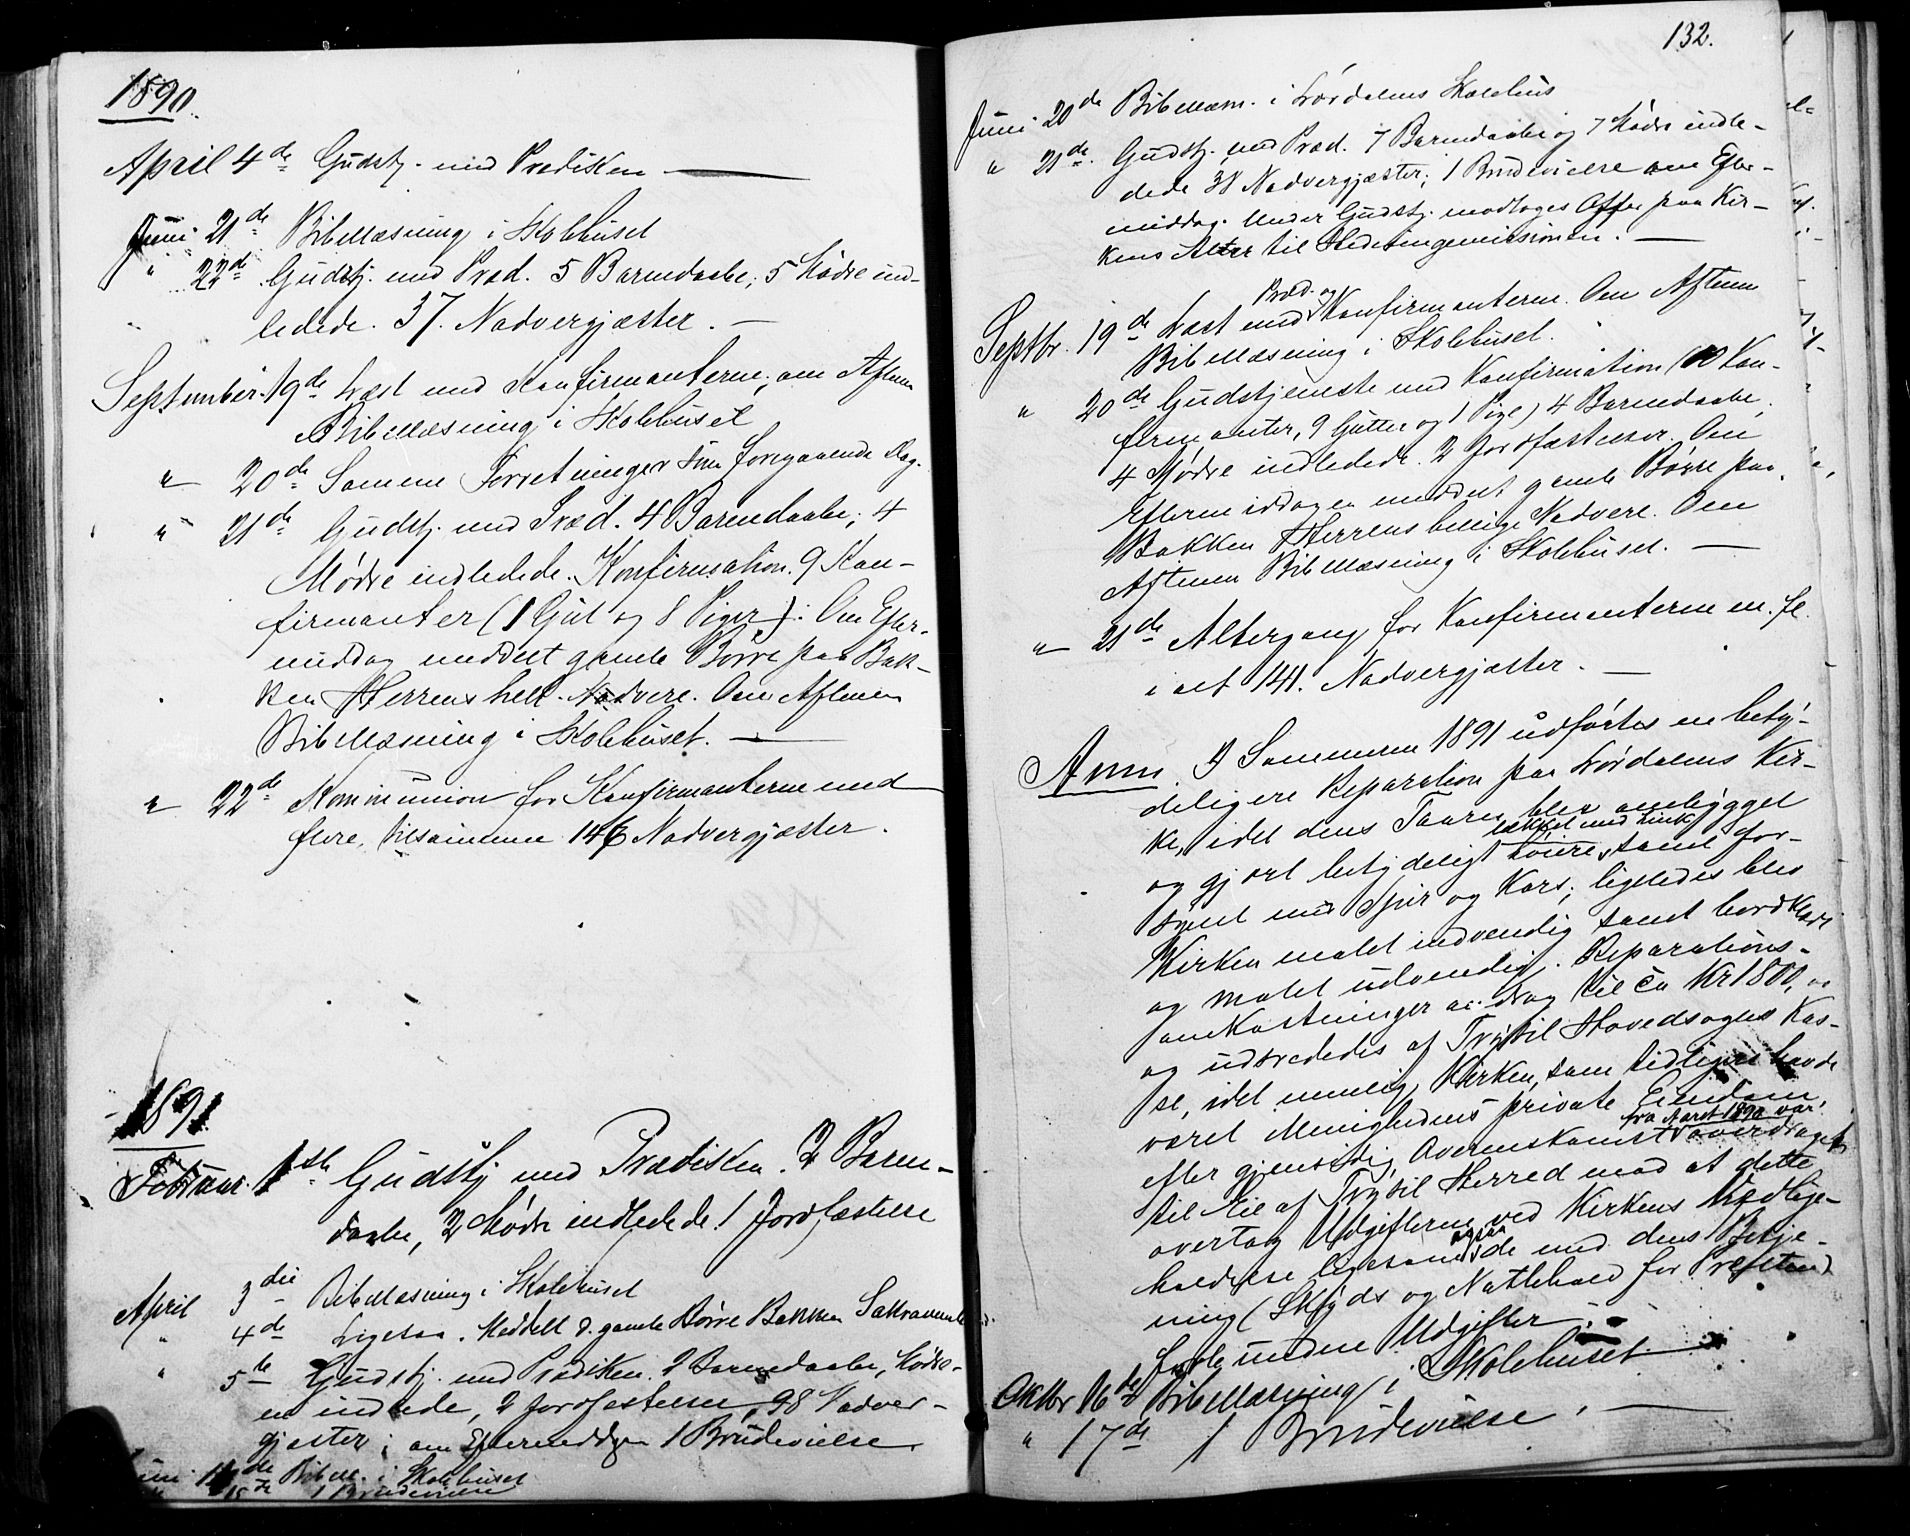 1890.
April 4de Gudstj. med Prædiken
Juni 21de Bibellæsning i Skolehuset
" 22de Gudstj. med Præd. 5 Barnedaabe; 5 Mødre ind-
ledede. 37. Nadvergjæster.
September 19de Læst med Konfirmanterne; om Aftenen
Bibellæsning i Skolehuset
" 20de Samme Forretninger som foregaaende Dag.
" 21de Gudstj. med Præd. 4 Barnedaabe; 4
Mødre indledede. Konfirmation. 9 Kon-
firmanter (1 Gut og 8 Piger). Om Efter-
middag meddelt gamle Børre paa Bak-
ken Herrens hell. Nadvere. Om Aftenen
Bibellæsning i Skolehuset.
" 22de Kommunion for Konfirmanterne med
flere, tilsammen 146 Nadvergjæster.
1891
Februar 1ste Gudstj med Prædiken. 2 Barne-
daabe, 2 Mødre indledede. 1 Jordfæstelse
April 3die Bibellæsning i Skolehuset
" 4de Ligesaa. Meddelt d. gamle Børre Bakken Sakramentet
" 5te Gudstj. med Prædiken. 2 Barnedaabe, Mødre-
ne indlede, 2 Jordfæstelser, 98 Nadver-
gjæster; om Eftermiddagen 1 Brudevielse
Bibell. i Skolehuset
15de 1 Brudevielse
132.
Juni 20de Bibellæsn. i Lørdalens Skolehus
" 21de Gudstj. med Præd. 7 Barnedaabe og 7 Mødre indle-
dede 38 Nadvergjæster; 1 Brudevielse om Efter-
middag. Under Gudstj. modtoges Offer paa Kir-
kens Alter til Hedningemissionen.
Præd. og
Septbr. 19de Læst med Konfirmanterne. Om Aftenen
Bibellæsning i Skolehuset.
" 20de Gudstjeneste med Konfirmation (10 Kon-
firmanter, 9 Gutter og 1 Pige) 4 Barnedaabe,
4 Mødre indledede. 2 Jordfæstelser. Om
Eftermiddagen meddelt gamle Børre paa
Bakken Herrens hellige Nadvere. Om
Aftenen Bibellæsning i Skolehuset.
" 21de Altergang for Konfirmanterne m. fl.
i alt 141. Nadvergjæster.
Anm. I Sommeren 1891 udførtes en bety-
deligere Reparation paa Lørdalens Kir-
ke, idet dens Taarn blev ombygget
tækket med Zink
og gjort betydeligt høiere, samt for-
synet med Spir og Kors; ligeledes blev
Kirken malet indvendig samt bordklædt
og malet udvendig. Reparations-
omkostninger androg til ca Kr 1800,00
og udrededes af Trysil Hovedsogns Kas-
se, idet nemlig Kirken, som tidligere havde
været Menighedens private Eiendom,
fra Aaret 1890 var
efter gjensidig Overenskomst overdraget
til Eie af Trysil Herred mod at dette
overtog Udgifterne ved Kirkens Vedlige-
ogsaa
holdelse ligesom de med dens Betje-
ning (Skyds og Nattehold for Præsten)
forbundne Udgifter.
Oktbr 16de Bibellæsning i Skolehuset
" 17de 1 Brudevielse.